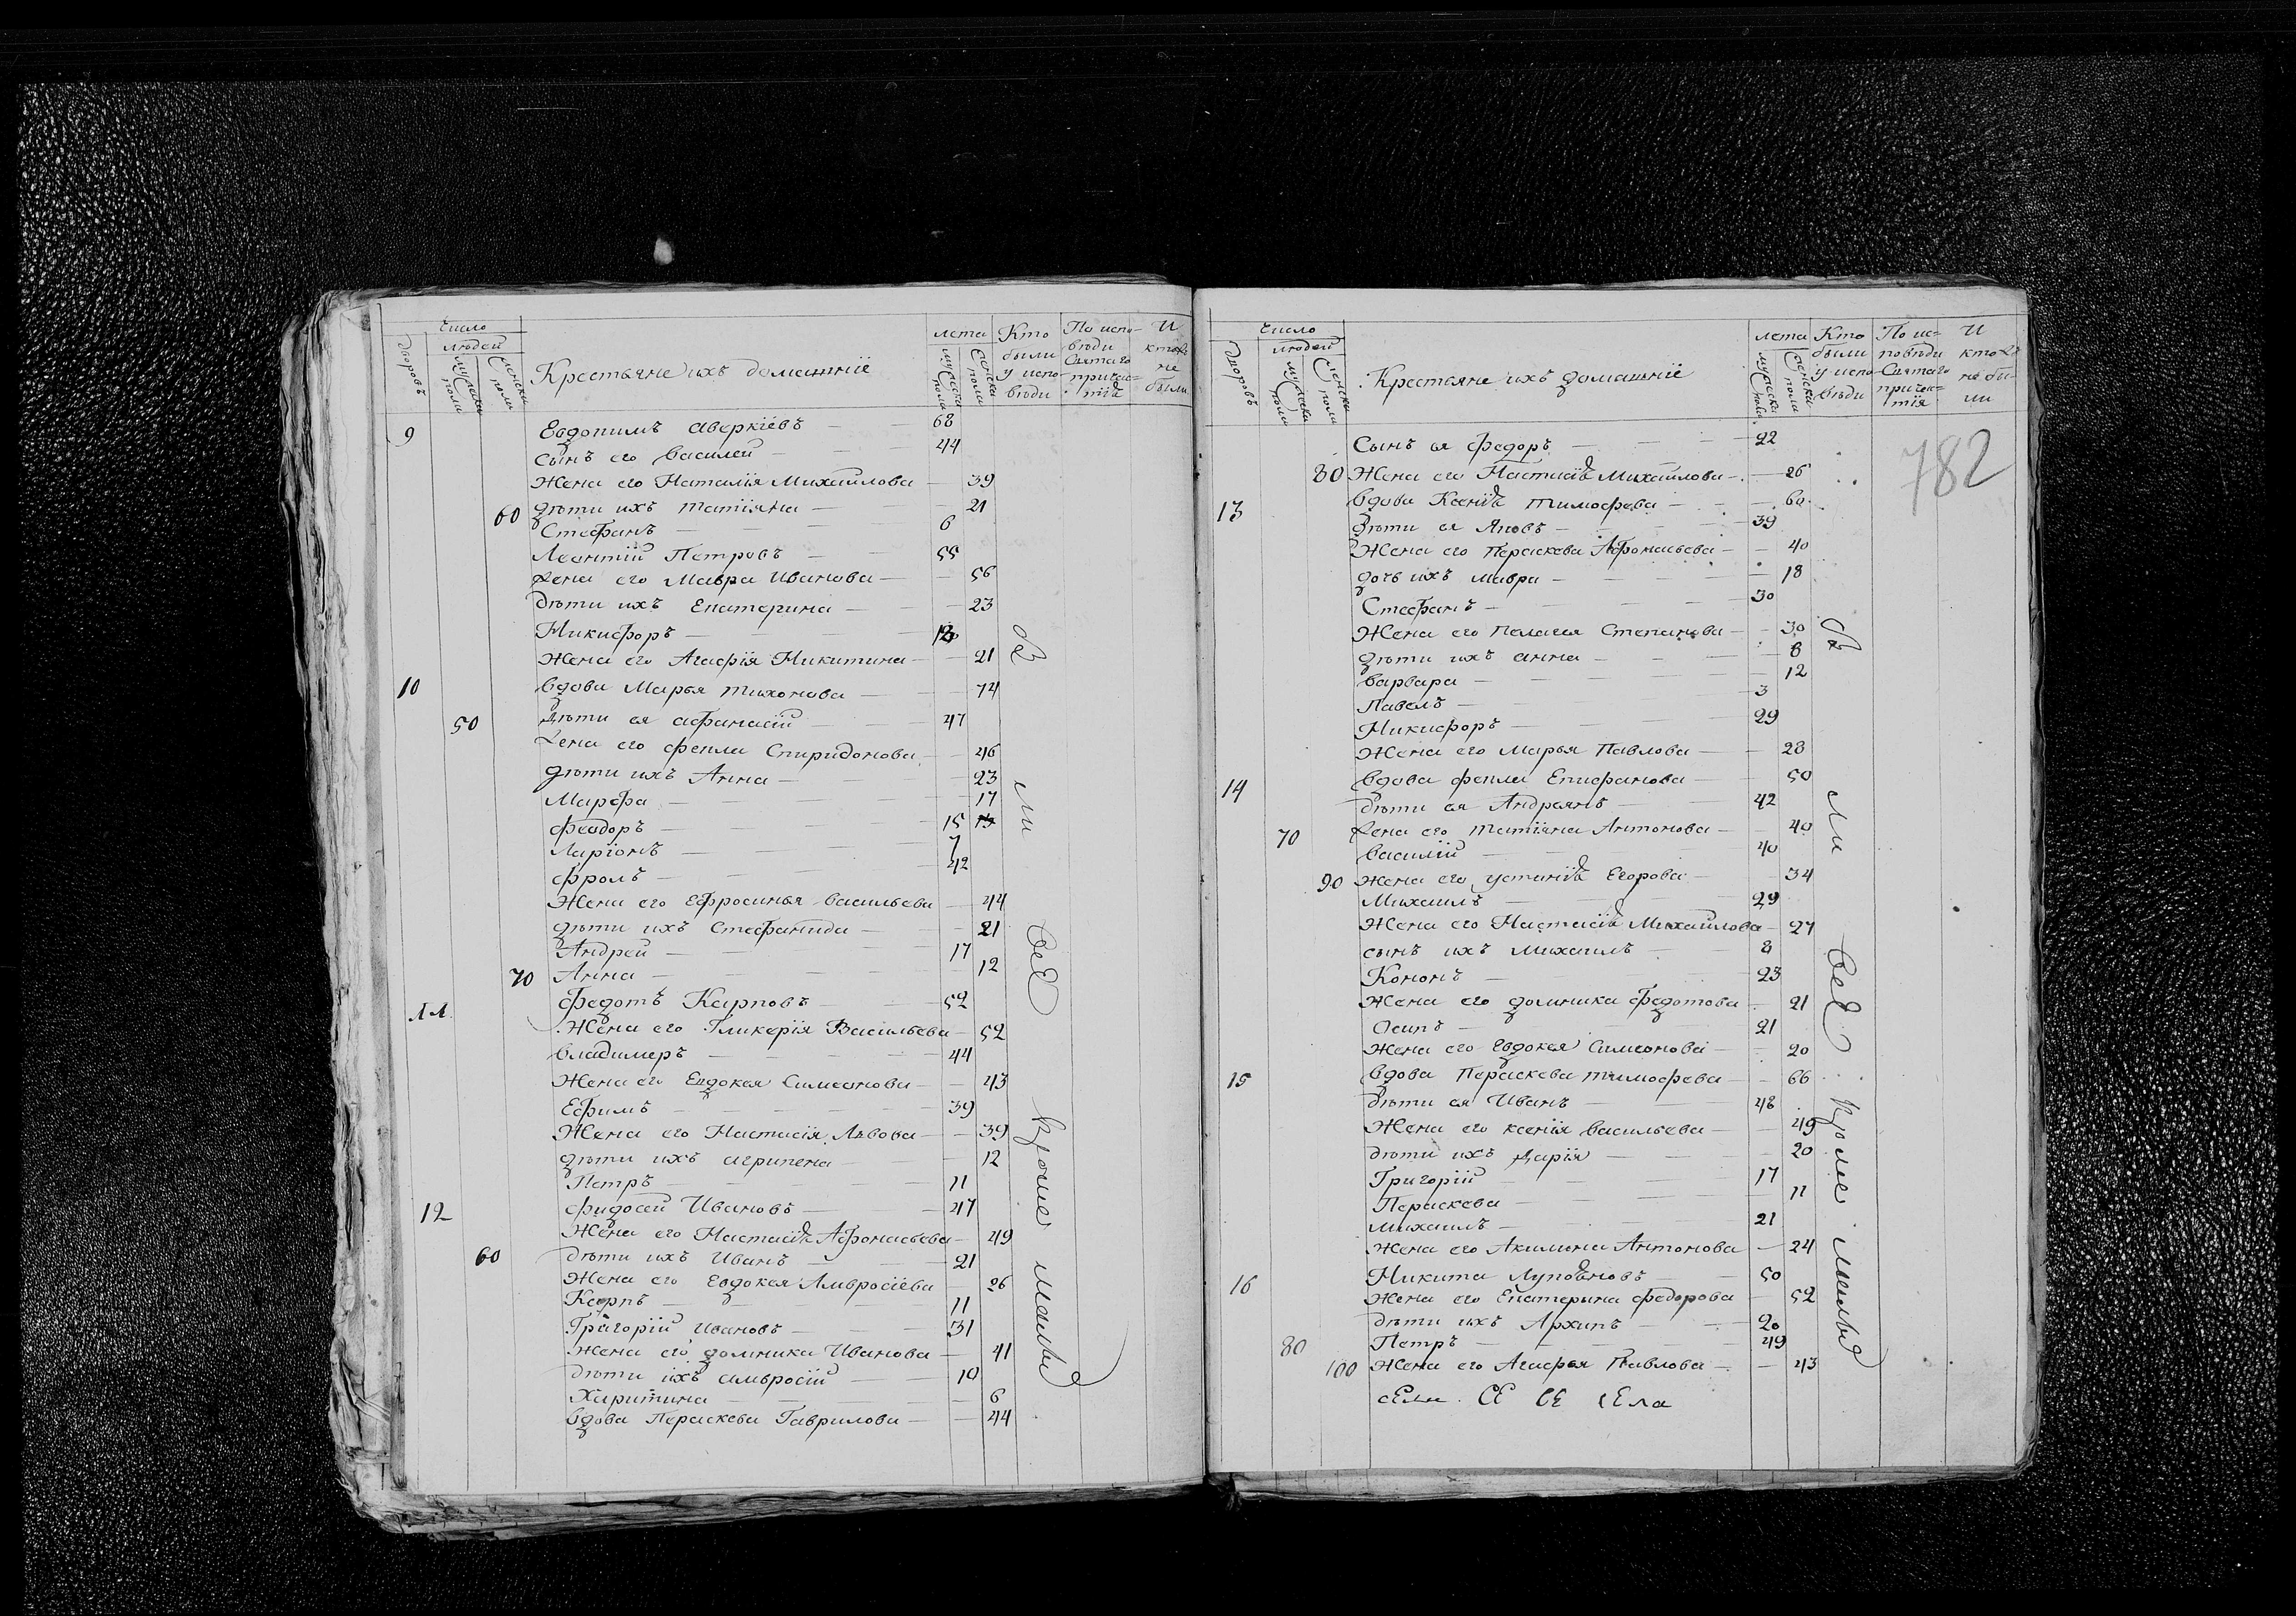 число
людей
дворовъ
мужеска пола
женска пола
Крестьяне ихъ домашнiе
лета
мужеска пола
женска пола
Кто были у испо- вѣди
По испо- вѣди Святаго причас- тiя
И кто не были
9 Евдокимъ аверкiевъ — 68
сынъ его василей — 44
Жена его Наталiя Михайлова — 39
60 дѣти ихъ татiяна — 21
Стефанъ — 6
Леонтiй Петровъ — 55
Жена его Мавра Иванова — 56
дѣти ихъ Екатерина — 23
Никифоръ —
Жена его Агафiя Никитина — 21
10 вдова Марья тихонова — 74
50 дѣти ея афанасiй — 47
Жена его фекла Спиридонова — 46
дѣти ихъ Анна — 23
Марфа — 17
феодоръ — 15
Ларiонъ — 7
фролъ — 42
Жена его Ефросинья васильева — 44
дѣти ихъ стефанида — 21
Андрей — 17
70 Анна — 12
11 федотъ Карповъ — 52
Жена его Гликерiя Васильева — 52
владимеръ — 44
Жена его Евдокея Симеонова — 43
Ефимъ — 39
Жена его Настасiя Львова — 39
дѣти ихъ агрипена — 12
Петръ — 11
12 фидосей Ивановъ — 47
Жена его Настасiя Афонасьева — 49
60 дѣти ихъ Иванъ — 21
Жена его Евдокея Амвросiева — 26
Карпъ — 11
Григорiй Ивановъ — 31
Жена его домника Иванова — 41
дѣти ихъ амвросiй — 10
Харитина — 6
вдова Пераскева Гаврилова — 44
Бы ли все кроме малыя
число
людей
дворовъ
мужеска пола
женска пола
Крестьяне ихъ домашнiе
лета
мужеска пола
женска пола
Кто были у испо- вѣди
По ис- повѣди Святаго причас- тiя
И кто не бы- ли
782
Сынъ ея федоръ — 22
80 Жена его Настасiя Михайлова — 26
13 вдова Ксенiя тимофева — 60
Дѣти ея Яковъ — 39
Жена его Пераскева Афонасьева — 40
дочь ихъ мавра — 18
Стефанъ — 30
Жена его пелагея Степанова — 30
дѣти ихъ анна — 8
варвара — 12
Павелъ — 3
Никифоръ — 29
Жена его Марья Павлова — 28
14 вдова фекла Епифанова — 50
дѣти ея Андреянъ — 42
70 Жена его татiяна Антонова — 40
василiй — 40
90 Жена его устинiя Егорова — 34
Михаилъ — 29
Жена его Настасiя Михайлова — 27
сынъ ихъ михаилъ — 8
Кононъ — 23
Жена его домника федотова — 21
Осипъ — 21
Жена его Евдокея Симеонова — 20
15 вдова Пераскева тимофева — 66
дѣти ея Иванъ — 48
Жена его ксенiя васильева — 49
дѣти ихъ дарiя — 20
Григорiй — 17
Пераскева — 11
михаилъ — 21
Жена его Акилина Антонова — 24
16 Никита Луповновъ — 50
Жена его Екатерина федорова — 52
дѣти ихъ Архипъ — 20
80 Петръ — 49
100 Жена его Агафья Павлова — 43
Бы ли все кроме малыя